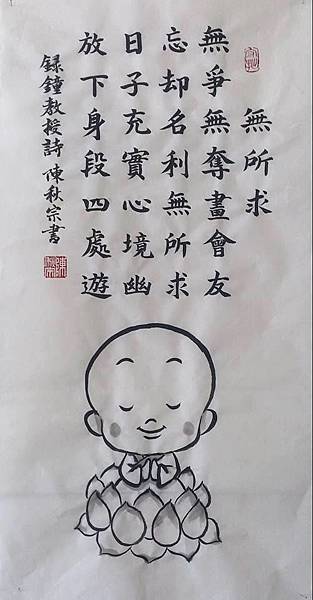 無所求
無爭無奪畫會友
忘却名利無所求
日子充實心境幽
放下身段四處遊
録鐘教授詩 陳秋宗書